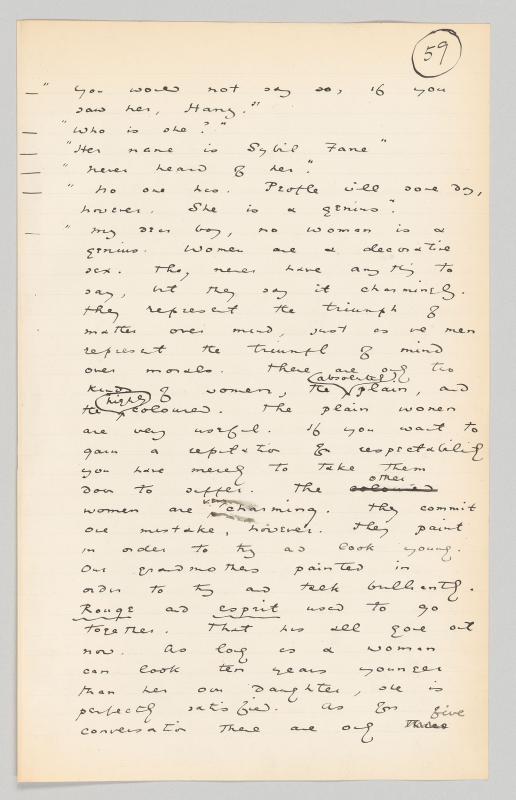 59
— " you would not say so, if you
saw her, Harry."
— "Who is she?"
— "Her name is Sybil Fane"
— "never heard of her".
— " no one has. People will some day,
however. She is a genius".
— " my dear boy, no woman is a
genius. Women are a decorative
sex. They never have any thing to
say, but they say it charmingly.
They represent the triumph of
matter over mind, just as we men
represent the triumph of mind
over morals. There are only two
absolutely
kinds of women, the plain, and
highly
the coloured. The plain women
are very useful. If you want to
gain a reputation for respectability
you have merely to take them
other
down to supper. The coloured
very
women are charming. They commit
one mistake, however. They paint
in order to try and look young.
Our grandmothers painted in
order to try and talk brilliantly.
Rouge and esprit used to go
together. That has all gone out
now. As long as a woman
can look ten years younger
than her own daughter, she is
perfectly satisfied. As for
five
conversation there are only three